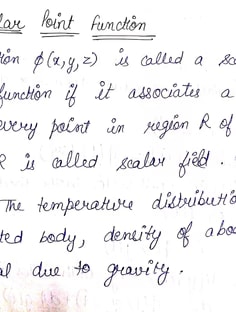 lar Point Function
ion φ(x,y,z) is called a sc
function if it associates a
every point in region R of
R is called scalar field.
The temperature distributio
ted body, density of a bo
al due to gravity.